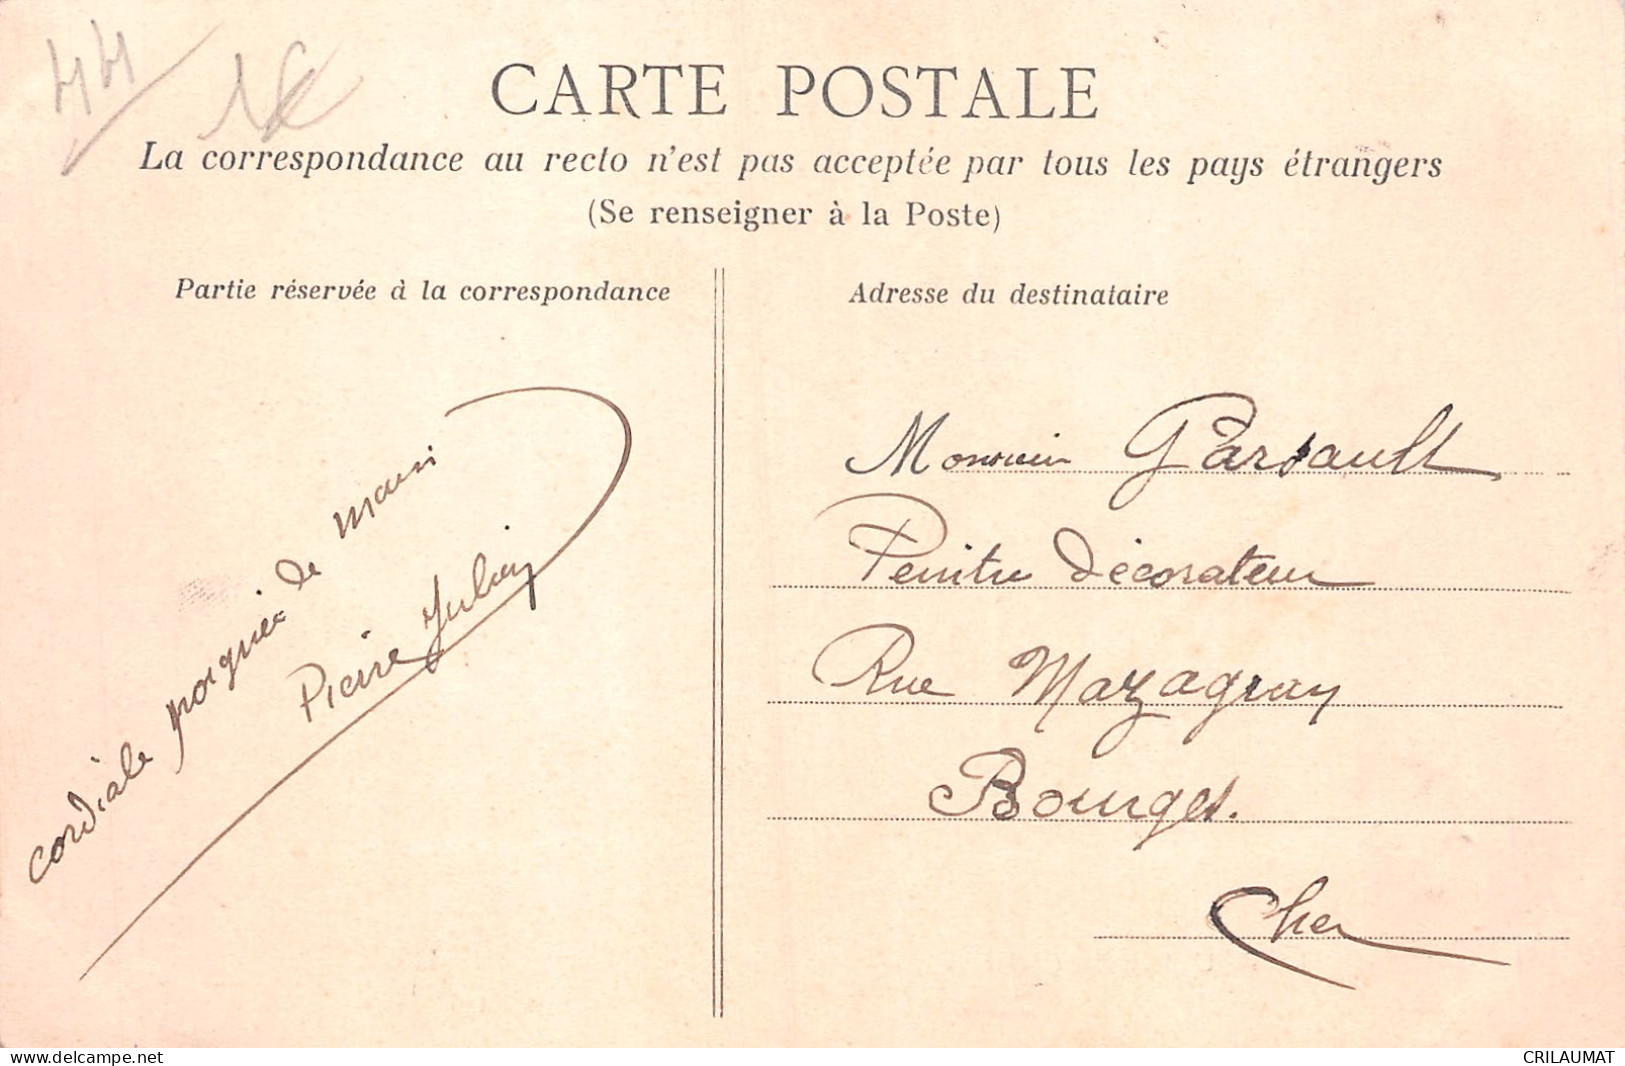 44
1€
CARTE POSTALE
La correspondance au recto n'est pas acceptée par tous les pays étrangers
(Se renseigner à la Poste)
Partie réservée à la correspondance
cordiale poignée de main
Pierre Julien
Adresse du destinataire
Monsieur Garsault
Peintre Décorateur
Rue Mazagran
Bourges.
Cher
www.delcampe.net
CRILAUMAT